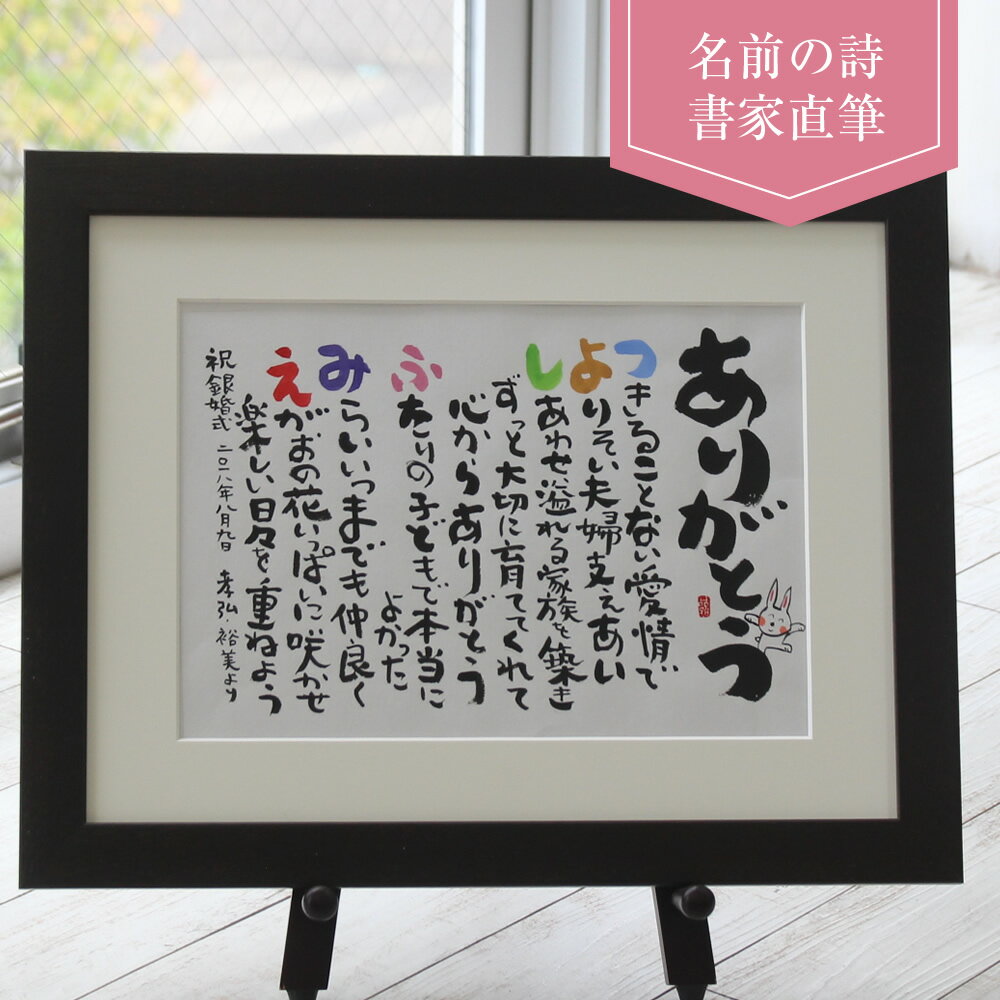 名前の詩
書家直筆
ありがとう
つきることない愛情で
よりそい夫婦支えあい
しあわせ溢れる家族を築き
ずっと大切に育ててくれて
心からありがとう
ふたりの子どもで本当に
よかった
みらいいつまでも仲良く
えがおの花いっぱいに咲かせ
楽しい日々を重ねよう
祝銀婚式 二〇一八年八月九日 孝弘・裕美より